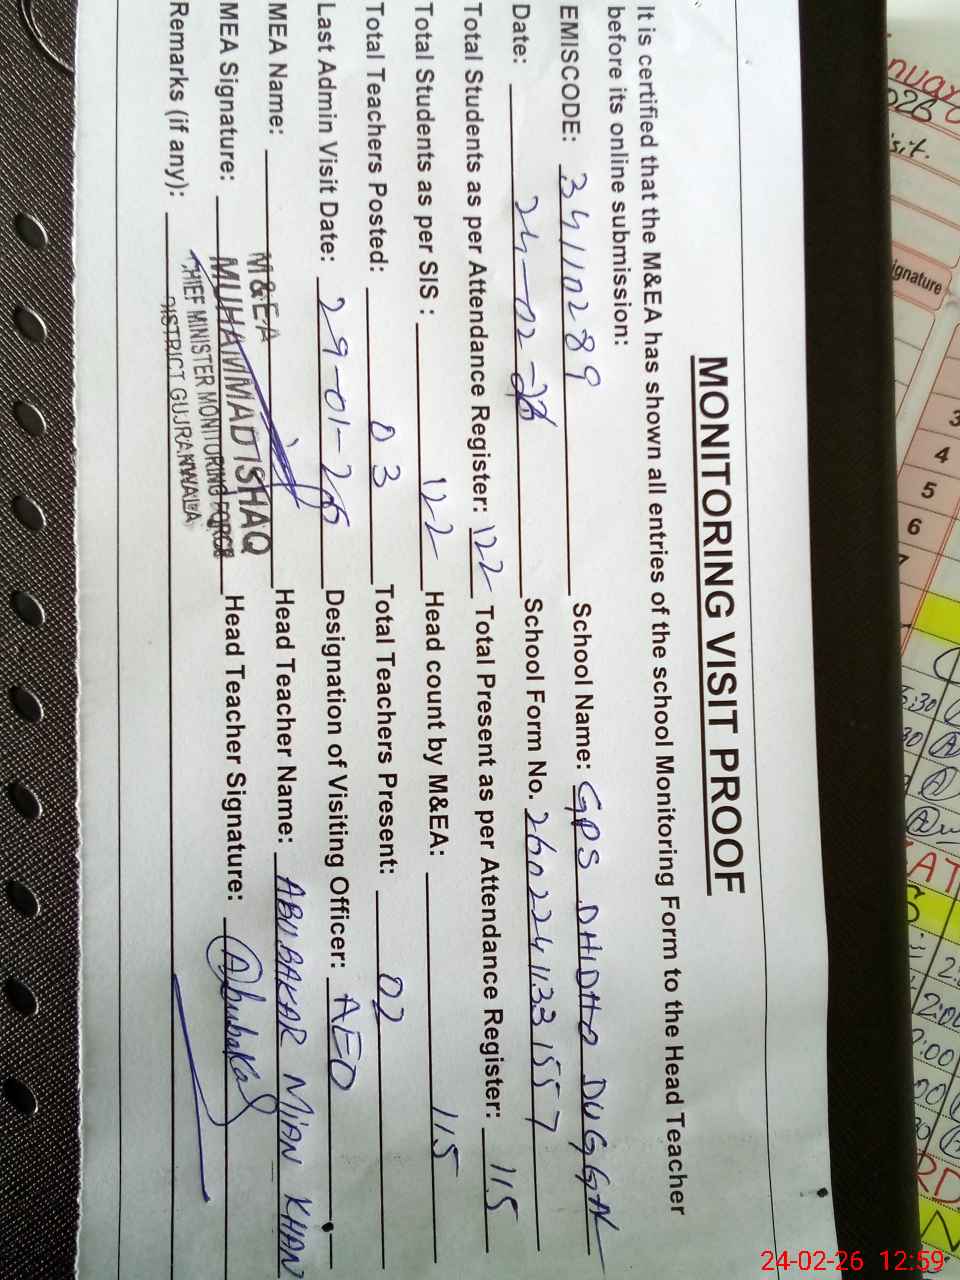 MONITORING VISIT PROOF
It is certified that the M&EA has shown all entries of the school Monitoring Form to the Head Teacher
before its online submission:
EMISCODE: 34110289 School Name: GPS DHIDHO DUGGN
Date: 24-02-26 School Form No. 26022411331557
Total Students as per Attendance Register: 122 Total Present as per Attendance Register: 115
Total Students as per SIS : 122 Head count by M&EA: 115
Total Teachers Posted: 03 Total Teachers Present: 02
Last Admin Visit Date: 29-01-26 Designation of Visiting Officer: AEO
MEA Name: M&EA Head Teacher Name: ABUBAKAR MIAN KHAN
MUHAMMAD ISHAQ
MEA Signature: Head Teacher Signature: Abubakar
CHIEF MINISTER MONITORING FORCE
DISTRICT GUJRANWALA
Remarks (if any):
ignature
3
4
5
6
24-02-26 12:59